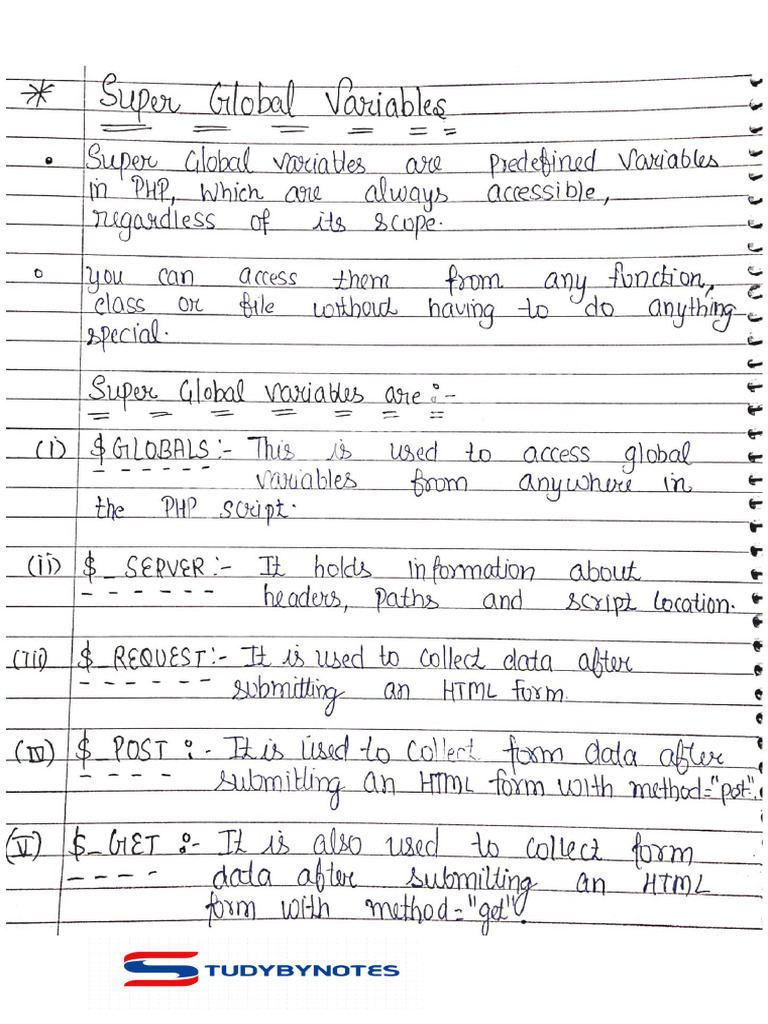 * Super Global Variables
• Super Global variables are predefined variables
in PHP, which are always accessible,
regardless of its scope.
○ you can access them from any function,
class or file without having to do anything
special.
Super Global variables are :-
(i) $GLOBALS :- This is used to access global
variables from anywhere in
the PHP script.
(ii) $_SERVER :- It holds information about
headers, paths and script location.
(iii) $_REQUEST :- It is used to collect data after
submitting an HTML form.
(IV) $_POST :- It is used to collect form data after
submitting an HTML form with method="post".
(V) $_GET :- It is also used to collect form
data after submitting an HTML
form with method="get".
STUDYBYNOTES